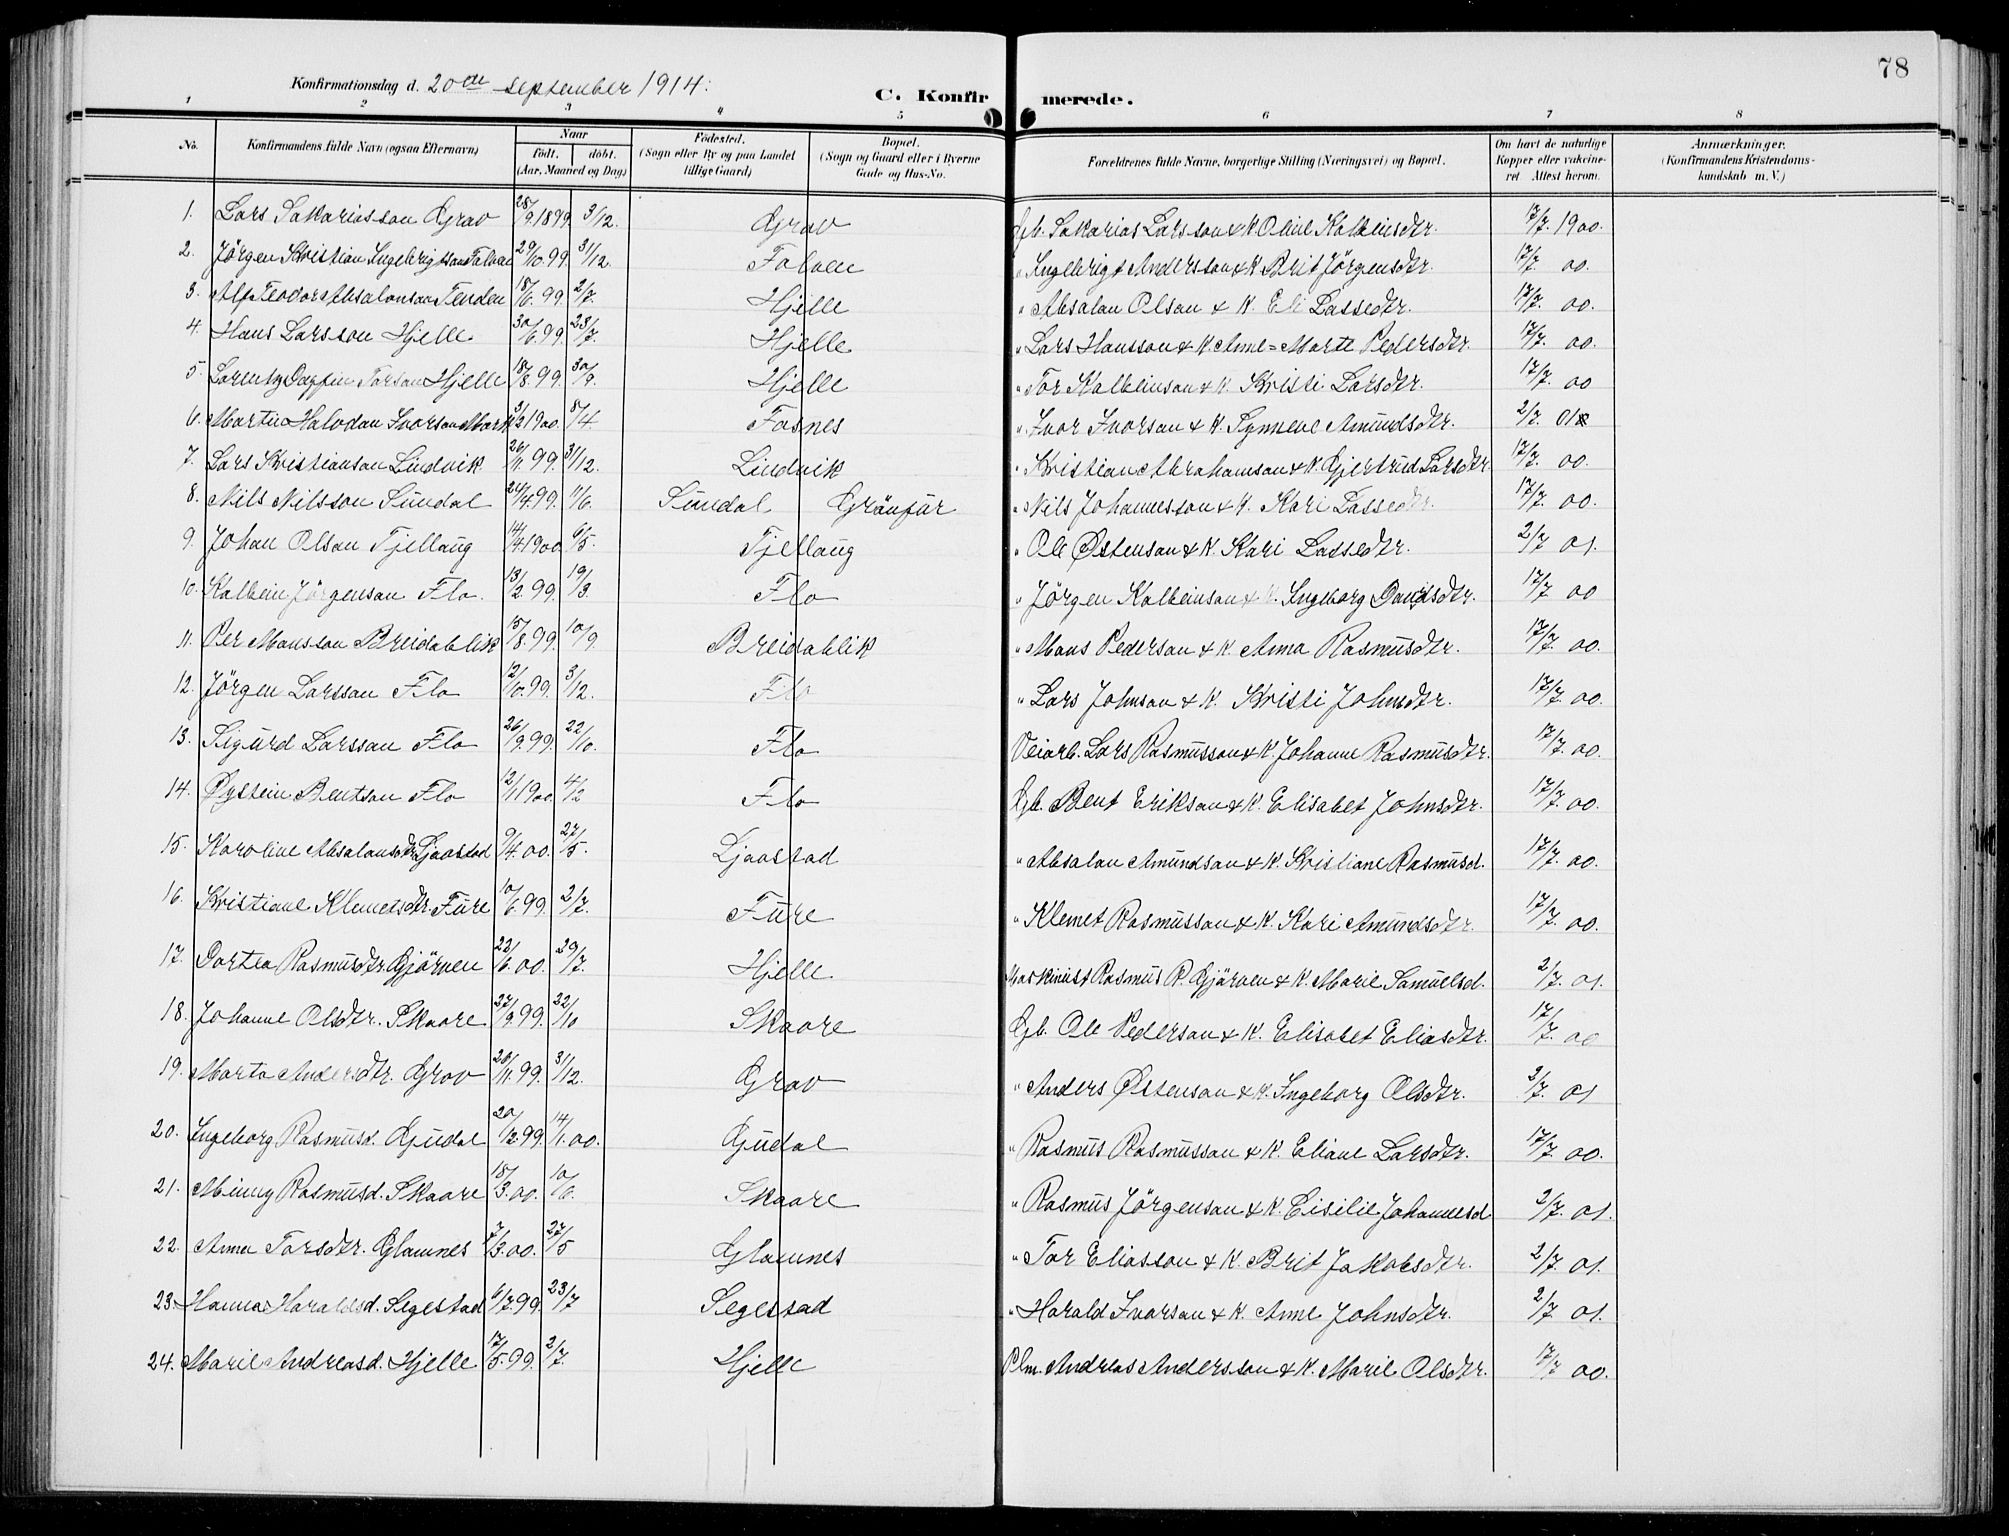 78
Konfirmationsdag d. 20de september 1914.
C. Konfirmerede.
1 2 3 4 5 6 7 8
No. Konfirmandens fulde Navn (ogsaa Efternavn) Naar födt. döbt. (Aar, Maaned og Dag) Födested. (Sogn eller By og paa Landet tillige Gaard) Bopæl. (Sogn og Gaard eller i Byerne Gade og Hus-No. Forældrenes fulde Navne, borgerlige Stilling (Næringsvei) og Bopæl. Om havt de naturlige Kopper eller vakcineret Attest herom. Anmærkninger. (Konfirmandens Kristendomskundskab m. V.)
1. Lars Sakariasson Grav 28/9 1899. 3/12. Grav Gb. Sakarias Larsson & K. Oline Kolbeinsdtr. 17/7. 1900.
2. Jörgen Kristian Ingebrigtson Folven 29/10. 99. 31/12. Folven " Ingebrigt Andersson & K. Brit Jörgensdtr. 17/7. 00.
3. Alf Teodor Absalonson Tenden 18/6. 99. 2/7. Hjelle " Absalon Olson & K. Eli Lassedtr. 17/7. 00.
4. Hans Larsson Hjelle 30/6. 99. 23/7. Hjelle " Lars Hansson & K. Anne-Marte Pedersdtr. 17/7. 00.
5. Lorents Dagfin Torson Hjelle 18/8. 99. 30/9. Hjelle " Tor Kolbeinson & K. Kristi Larsdtr. 17/7. 00
6. Martin Halvdan Ivarson Mork 3/2 1900. 8/4. Fosnes " Ivar Ivarson & K. Synneve Amundsdtr. 2/7. 01
7. Lars Kristianson Lindvik 26/11. 99. 31/12. Lindvik " Kristian Abrahamson & K. Gjertrud Larsdtr. 17/7. 00.
8. Nils Nilsson Sundal 24/4. 99. 11/6. Sundal Grönfur " Nils Johannesson & K. Kari Lassedtr. 17/7. 00.
9. Johan Olson Tjellaug 14/4. 1900 6/5. Tjellaug " Ole Østenson & K. Kari Lassedtr. 2/7 01.
10. Kolbein Jörgenson Flo. 13/2. 99. 19/3. Flo " Jörgen Kolbeinson & K. Ingeborg Davidsdtr. 17/7 00
11. Per Monsson Breidablik 15/8. 99. 10/9. Breidablik " Mons Pederson & K. Anna Rasmusdtr. 17/7. 00.
12. Jörgen Larsson Flo 12/10. 99. 3/12. Flo " Lars Johnson & K. Kristi Johnsdtr. 17/7. 00.
13. Sigurd Larsson Flo 26/9. 99. 22/10. Flo Veiarb. Lars Rasmusson & K. Johanne Rasmusdtr. 17/7. 00.
14. Øystein Bentson Flo 12/1 1900. 4/2 Flo Gb. Bent Erikson & K. Elisabet Johnsdtr. 17/7. 00.
15. Karoline Absalonsdtr. Ljaastad 9/4. 00. 27/5. Ljaastad " Absalon Amundson & K. Kristiane Rasmusd. 17/7. 00.
16. Kristiane Klemetsdtr. Fure 10/6. 99. 2/7. Fure " Klemet Rasmusson & K. Kari Amundsdtr. 17/7. 00.
17. Dortea Rasmusdtr. Gjörven 22/6. 00. 29/7. Hjelle Maskinist Rasmus R. Gjörven & K. Marie Samuelsd. 2/7. 01.
18. Johanne Olsdtr. Skaare 27/9. 99. 22/10 Skaare Gb. Ole Pederson & K. Elisabet Eliasdtr. 17/7. 00
19. Marta Andersdtr. Grov 20/11. 99. 31/12. Grav " Anders Østenson & K. Ingeborg Olsdtr. 2/7. 01
20. Ingeborg Rasmusd. Gjudal 20/12. 99. 14/1. 00. Gjudal " Rasmus Rasmusson & K. Eliane Larsdtr. 17/7. 00.
21. Minny Rasmusd. Skaare 18/3. 00. 10/6. Skaare " Rasmus Jörgenson & K. Cisilie Johannesd. 2/7. 01.
22. Anna Torsdtr. Glomnes 7/3. 00. 27/5 Glomnes " Tor Eliasson & K. Brit Jakobsdtr. 2/7. 01.
23. Hanna Haraldsd. Segestad 6/7. 99. 23/7 Segestad " Harald Ivarson & K. Anne Johnsdtr. 2/7 01.
24. Marie Andreasd. Hjelle 17/5. 99. 2/7. Hjelle Plm. Andreas Andersson & K. Marie Olsdtr. 17/7 00.